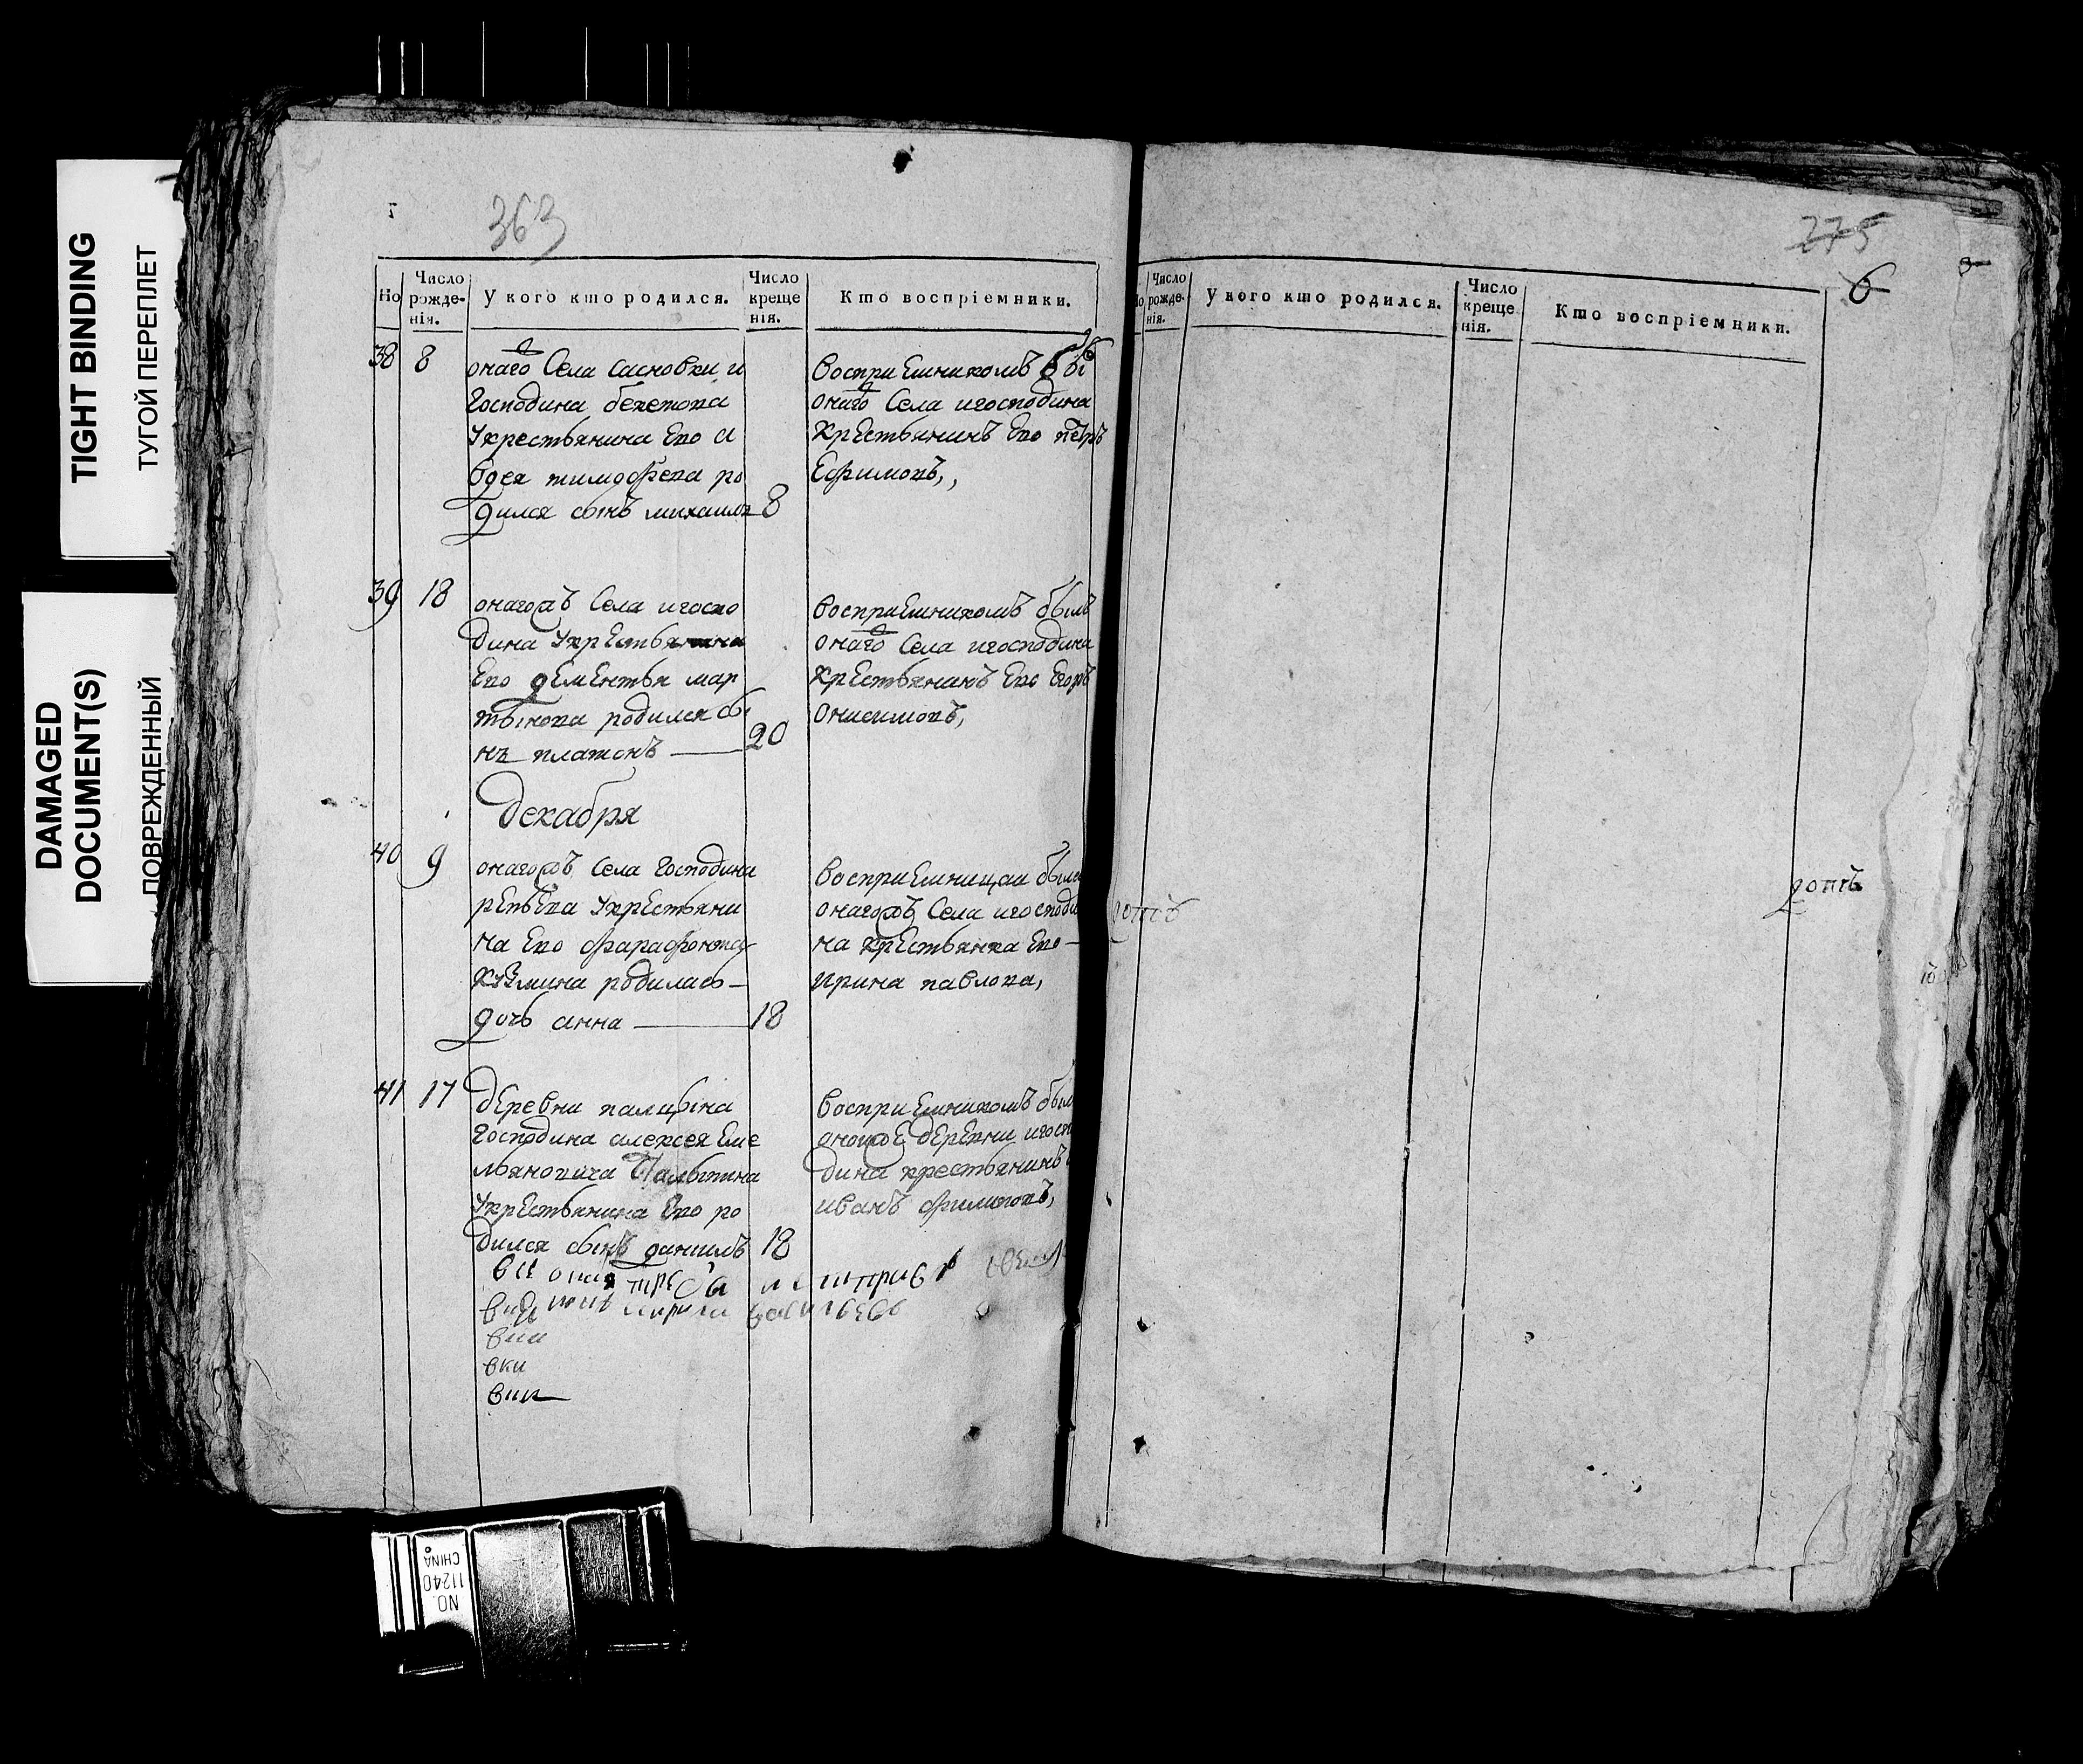 TIGHT BINDING
ТУГОЙ ПЕРЕПЛЕТ
DAMAGED
DOCUMENT(S)
ПОВРЕЖДЕННЫЙ
363
Но
Число рожде-нія.
У кого кто родился.
Число креще нія.
Кто воспріемники.
38 8
онаго Села сасновки и
Господина бекетова
Укрестьянина Ево а
вдея тимофеева ро
дился сынъ михаила 8
воспри Емникомъ бы
онаго Села игосподина
крЕстьянинъ Ево петръ
Ефимовъ,,
39 18
онагожъ Села игоспо
дина УкрЕстьянина
Ево дЕмЕнтья мар
тынова родился сы
нъ платонъ 20
восприЕмникомъ былъ
онаго Села игосподина
КрЕстьянинъ Ево Егоръ
Онисимовъ,
декабря
40 9
онагожъ Села Господина
рЕпьЕва УкрЕстьяни
на Ево фарафонта
Кузмина родилась
дочь анна 18
воспр҃иЕмницаи была
онагожъ Села игосподи
на крЕстьянка Ево
ирина павлова,
41 17
дЕревни палибина
Господина алексея Еме
льяновича Палибина
УкрЕстьянина Ево ро
дился сынъ данилъ 18
восприЕмникомъ был
оноижЕ дЕрЕвни игосп
дина крестьянинъ
иванъ филиповъ,
вки
275
6
Число рожде-нія.
У кого кто родился.
Число креще нія.
Кто воспріемники.
NO. 11240
CHINA